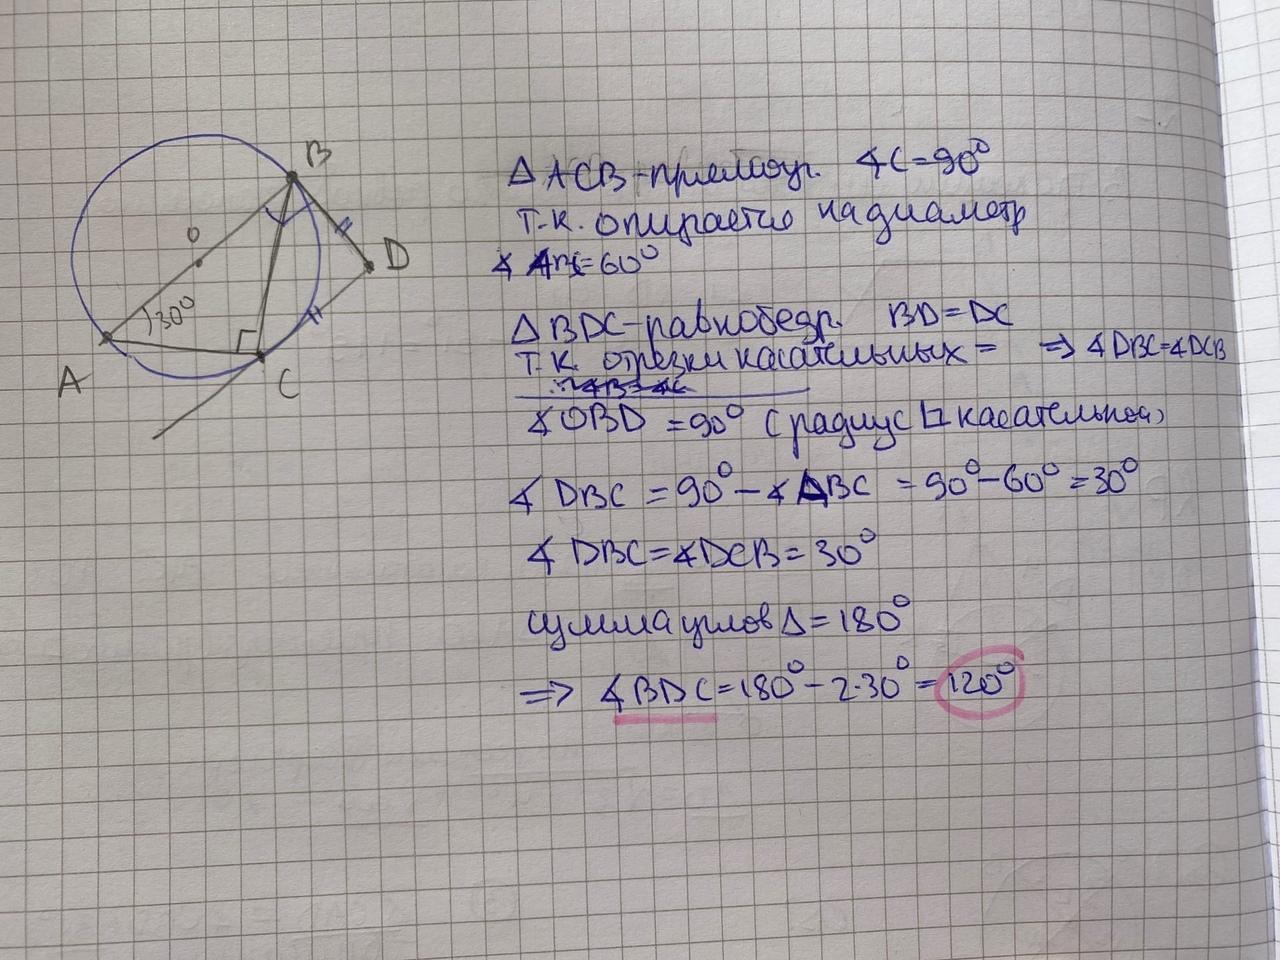 B
O
D
30°
A
C
Δ ACB-прямоуг. ∡C=90°
т.к. опирается на диаметр
∡ ABC=60°
Δ BDC-равнобедр. BD=DC
т.к. отрезки касательных = ⇒ ∡DBC=∡DCB
∡OBD =90° (радиус ⊥ касательной)
∡ DBC =90°-∡ABC =90°-60°=30°
∡ DBC=∡DCB=30°
сумма углов Δ=180°
⇒ ∡BDC=180°-2·30°=120°